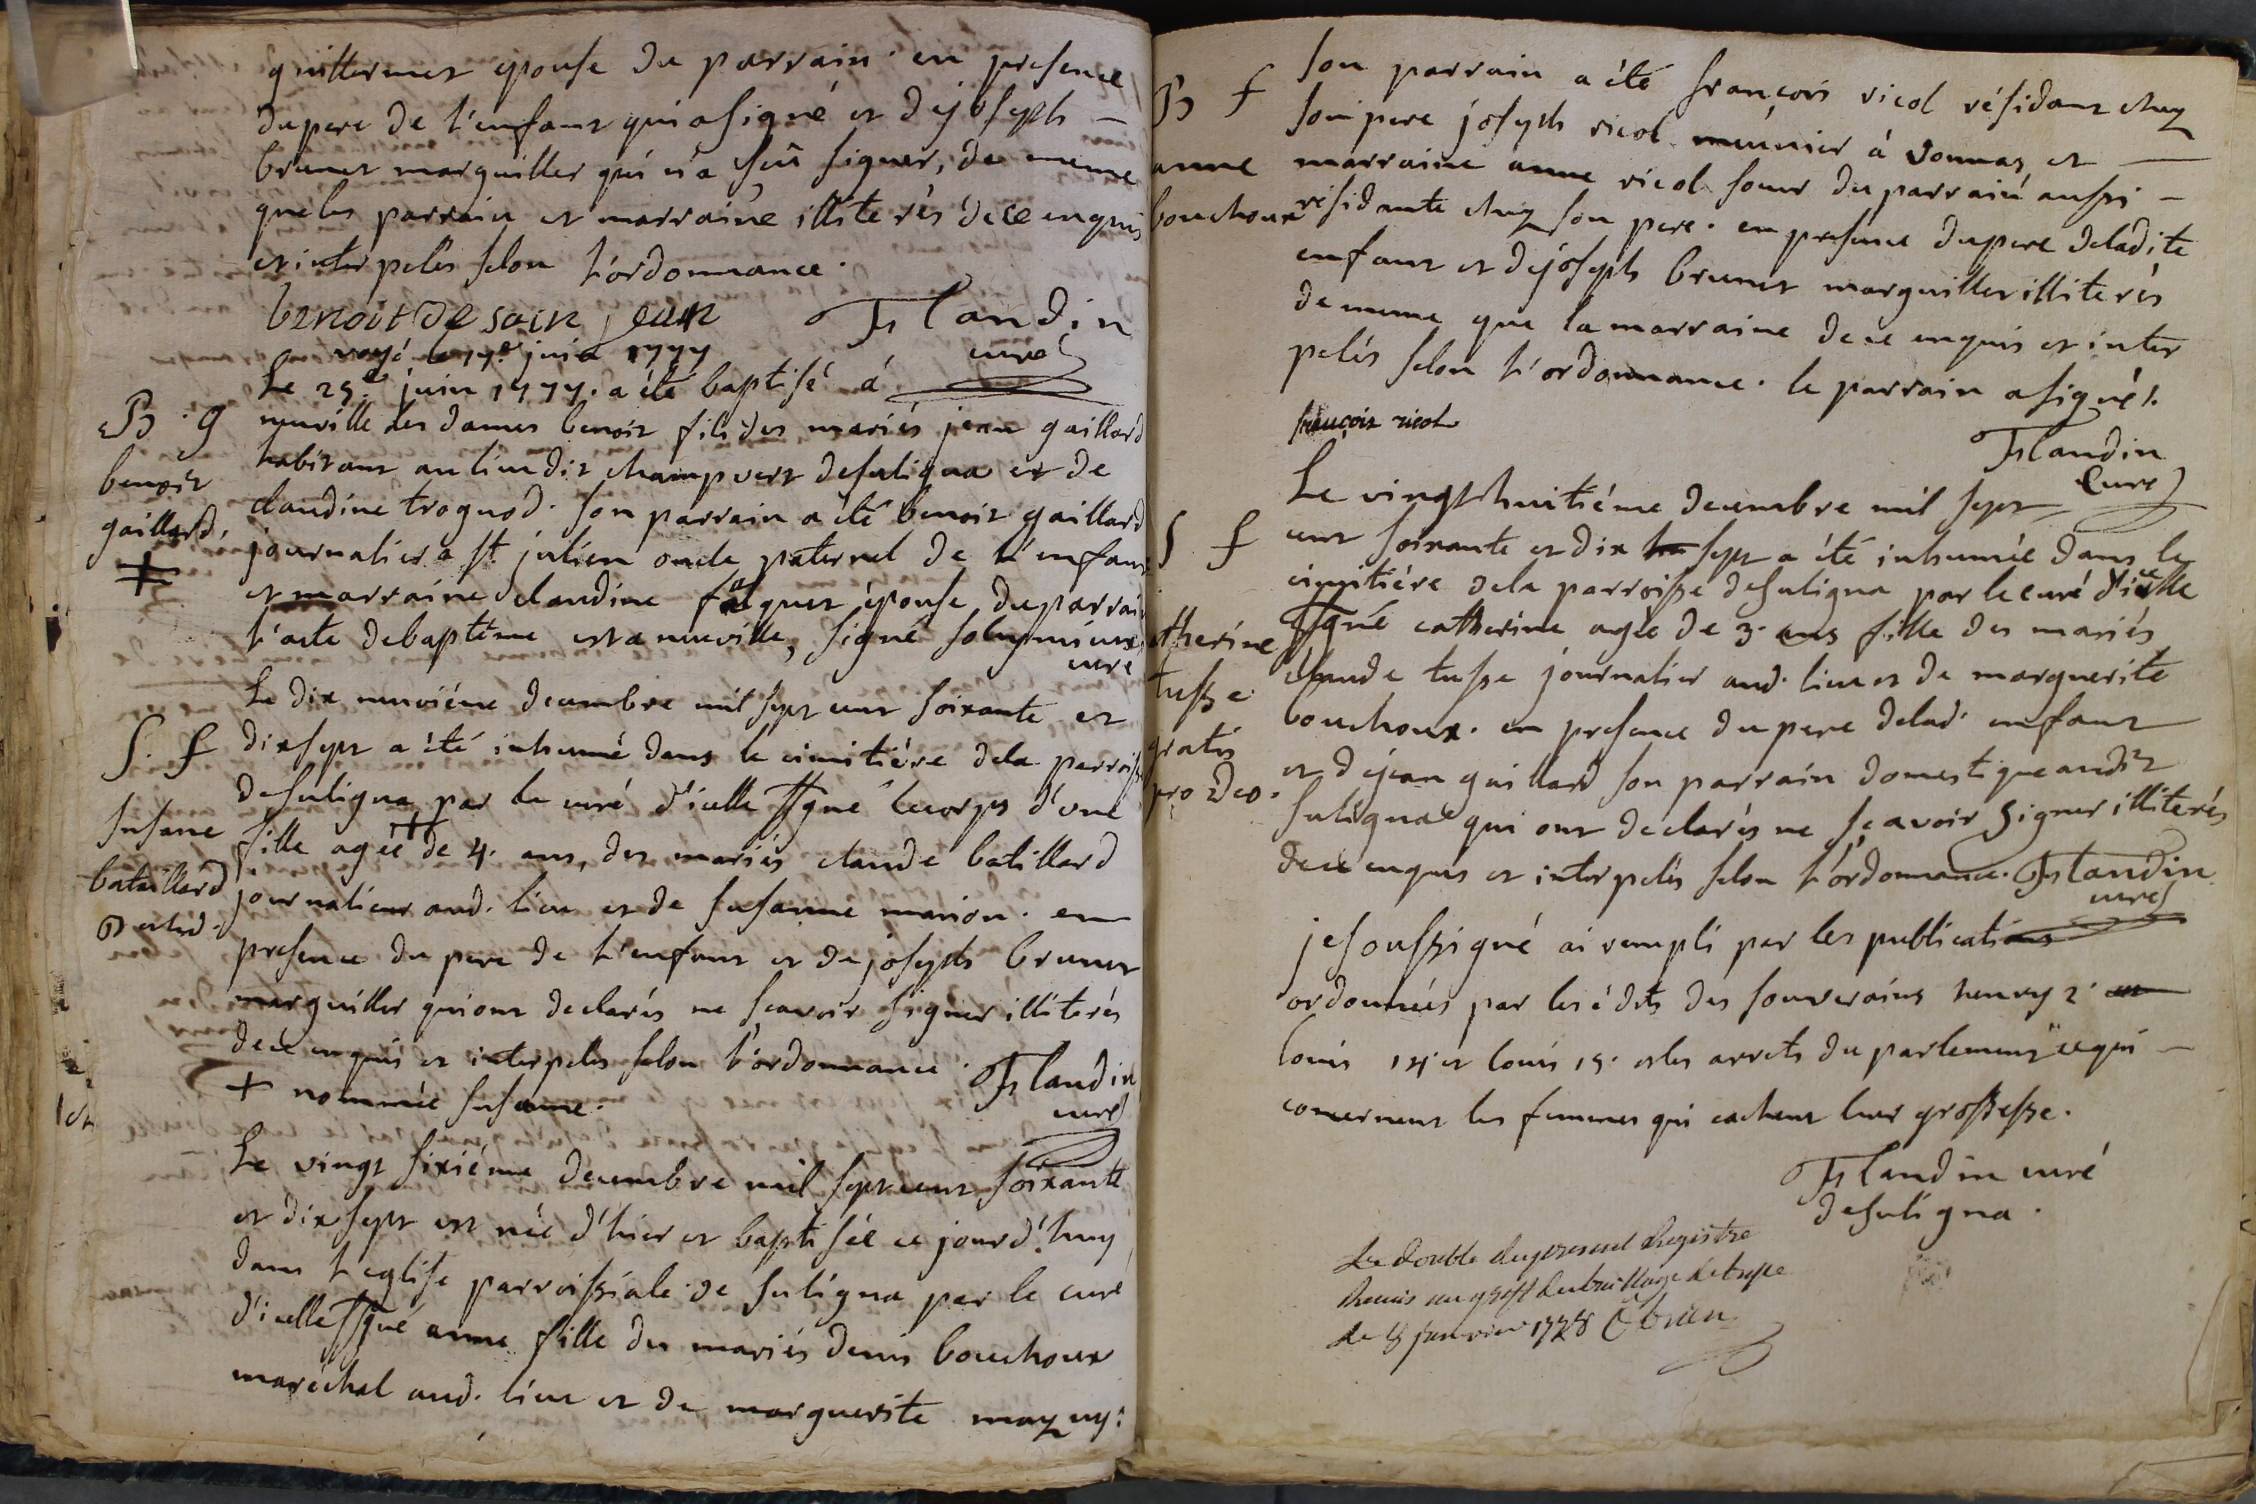 guillermet epouse du parrain. en presence
du pere de l'enfant qui a signé et de joseph –
brunet marguiller qui n'a sçu signer, de meme
que les parrain et marraine illiterés de ce enquis
et interpelés selon l'ordonnance.
benoit de sain jean Flandin
curé
juin 1777
B. g
benoit
gaillard.
Le 25e juin 1777. a été baptisé á
neuville les dames benoit fils des mariés jean gaillard
habitant au lieu dit champvert de suligna et de
claudine trognod. son parrain a été benoit gaillard
journalier a st. julien oncle paternel de l'enfant
et marraine claudine falquet épouse du parrain
l'acte de baptéme est a neuville, signé
curé
S. f
susane
bataillard
Le dix neuviéme decembre mil sept cent soixante et
dix sept a été inhumé dans le cimitiére de la parroisse
de suligna par le curé d'icelle ssgné le corps d'une
fille agée + de 4. ans, des mariés claude batillard
journalier aud. lieu et de susanne marion. en
presence du pere de l'enfant et de joseph brunet
marguiller qui ont declarés ne sçavoir signer illiterés
de ce enquis et interpelés selon l'ordonnance.
+ nommée susanne. Flandin
curé
Le vingt sixiéme decembre mil sept cent soixante
et dix sept est née d'hier et baptisée ce jourd'huy
dans l'eglise parroissiale de suligna par le curé
d'icelle ssgné anne fille des mariés denis bouchoux
maréchal aud. lieu et de marguerite mazuy:
B f
anne
bouchoux
son parrain a été françois ricol résidant chez
son pere joseph ricol meunier á vonnas et –
marraine anne ricol soeur du parrain aussi –
résidante chez son pere. en presence du pere de ladite
enfant et de joseph brunet marguiller illiterés
de meme que la marraine de ce enquis et inter
pelés selon l'ordonnance. le parrain a signé.
françois ricol
Flandin
Curé
S f
catherine
tusse
gratis
pro deo.
Le vingt huitiéme decembre mil sept
cent soixante et dix sept a été inhumée dans le
cimitiére de la parroisse de suligna par le curé d'icelle
ssgné catherine agée de 3. ans fille des mariés
claude tusse journalier aud. lieu et de marguerite
bouchoux. en presence du pere de lad. enfant
et de jean gaillard son parrain domestique audit
suligna qui ont declarés ne sçavoir signer illiterés
de ce enquis et interpelés selon l'ordonnance. Flandin
curé
je soussigné ai rempli par les publications
ordonnées par les édits des souverains henry 2.
louis 14 et louis 15. et les arrets du parlement ce qui –
concernent les femmes qui cachent leur grossesse.
Flandin curé
de suligna.
Le double du present Registre
Remis au greffe du bailliage de bresse
le 8 janvier 1778